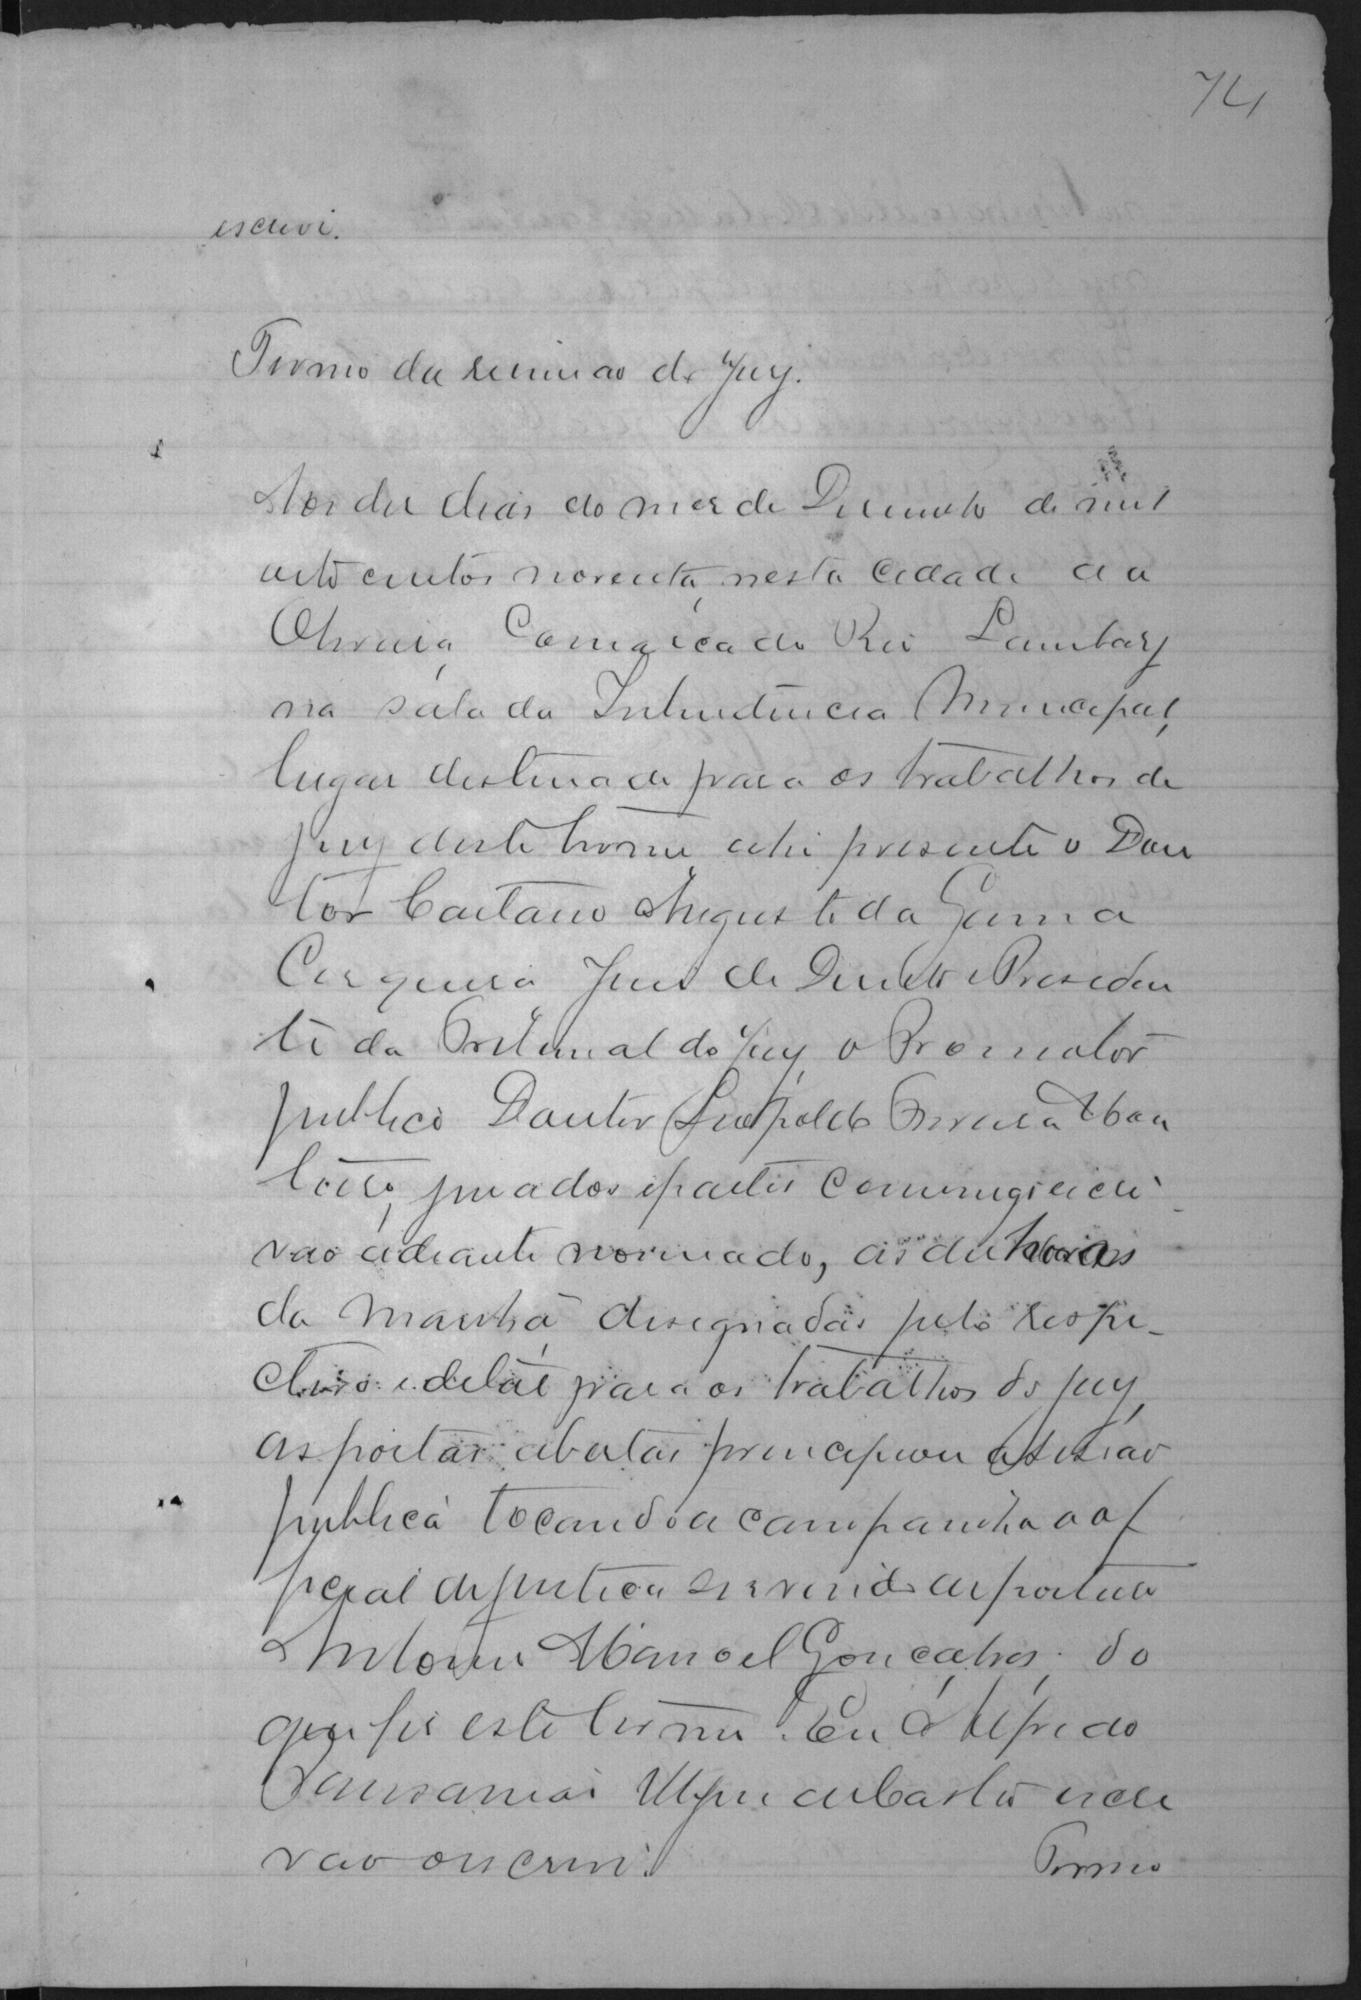 74
escrevi.
Termo da reunião do Jury.
Aos dez dias do mez de Dezembro de mil
oito centos noventa, nesta cidade da
Oliveira, Comarca do Rio Lambary
na sala da Intendencia Municipal,
lugar destinado para os trabalhos do
jury deste termo ahi presente o Dou
tor Caetano Augusto da Gama
Cerqueira Juis de Direito e Presiden
te do Tribunal do Jury, o Promotor
publico Doutor Leopoldo Ferreira Mon
teiro, jurados e partes commigo escri
vão adiante nomeado, as dez horas
da manhã designadas pelo respe-
ctivo edital para os trabalhos do jury,
as portas abertas principiou a sessão
publica tocando a campainha o of
ficial de justiça servindo de porteiro
Antonio Manoel Gonçalves; do
que fis este termo. Eu Alfredo
Pausanias de Bastos escri
vão o escrevi.
Termo